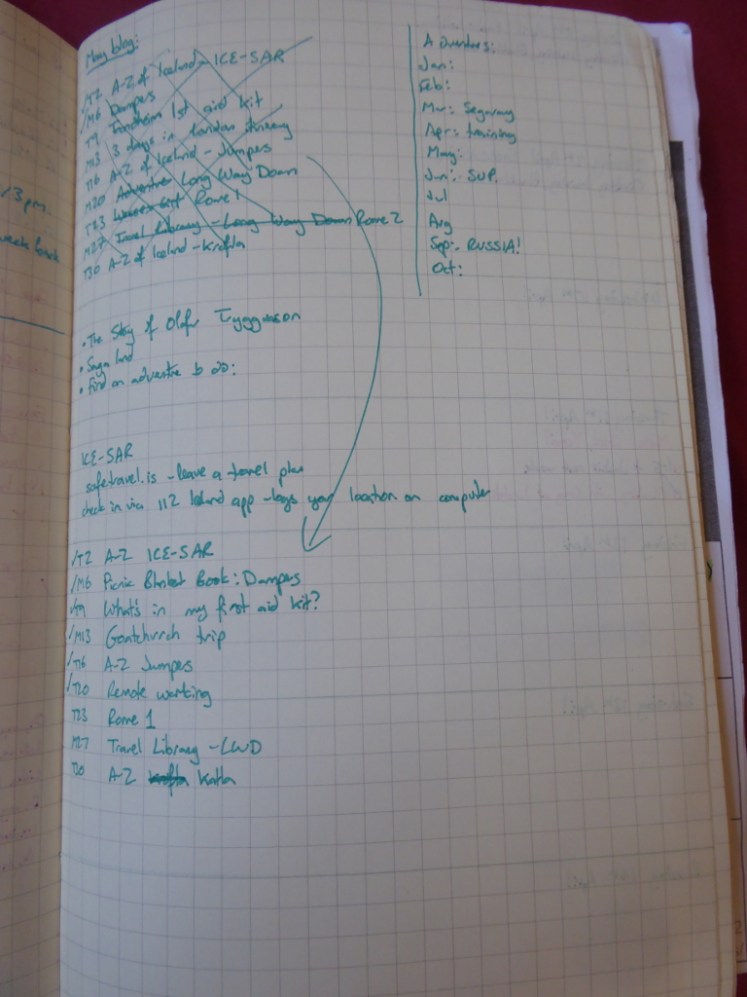 May blog:
/T2 A-Z of Iceland - ICE-SAR
/M6 Dampers
T9 1st aid kit
M13 3 days in London itinerary
T16 A-Z of Iceland - Jumpers
M20 Adventure Long Way Down
T23 Rome 1
M27 Travel Library - Long Way Down Rome 2
T30 A-Z of Iceland - Krafla
• The Story of Olafur Tryggvason
• Saga land
• Find an adventure to do:
ICE-SAR
safetravel.is - leave a travel plan
check in via 112 Iceland app - logs your location on computer
/T2 A-Z ICE-SAR
/M6 Picnic Blanket Book: Dampers
/T9 What's in my first aid kit?
/M13 Goatchurch trip
/T16 A-Z Jumpers
/T20 Remote working
T23 Rome 1
M27 Travel Library - LWD
T30 A-Z Krafla Katla
Adventures:
Jan:
Feb:
Mar: Segaway
Apr: training
May:
Jun: SUP.
Jul
Aug
Sep: RUSSIA!
Oct:
/3pm
week back